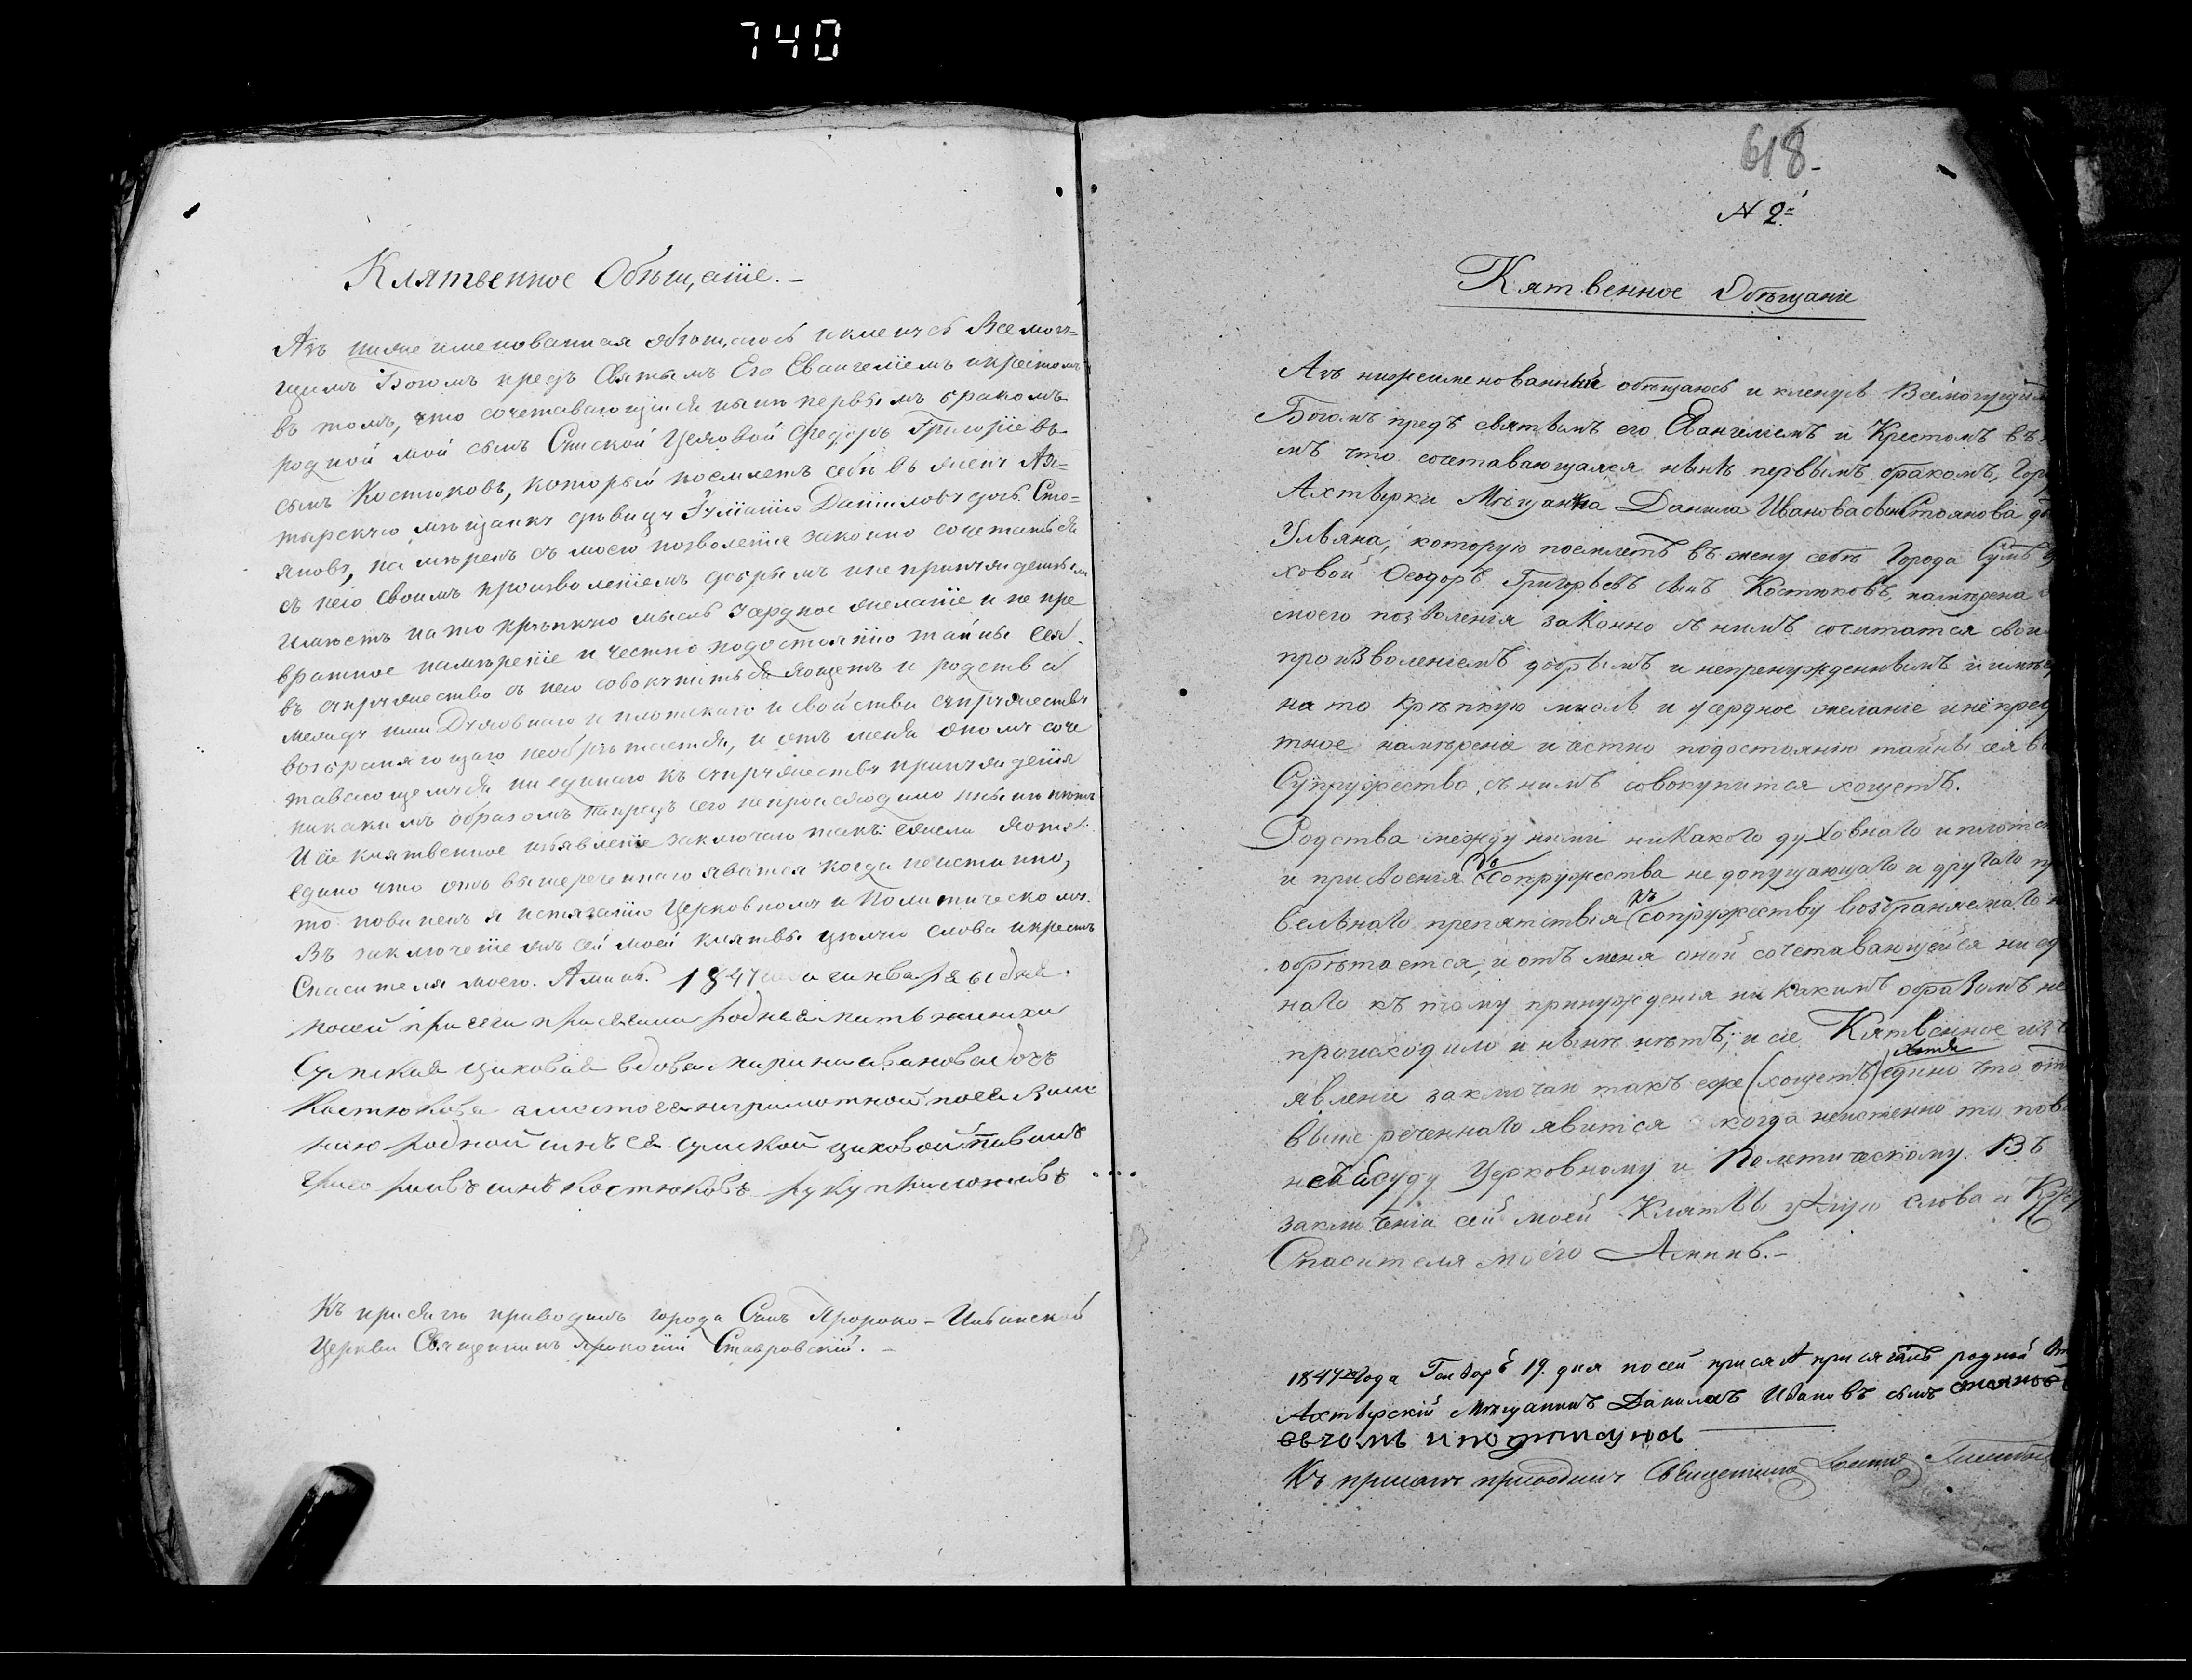 740
Клятвенное Обѣщаніе. –
Азъ ниже именованная обѣщаюсь и кленусь Всемогу=
щимъ Богомъ предъ Святымъ Его Евангеліемъ и крестомъ
въ томъ, что сочетавающійся нынѣ первымъ бракомъ
родной мой сынъ Сумской Цеховой Федоръ Григоріевъ
сынъ Костюковъ, который поемлетъ себѣ въ жену Ах=
тырскую мѣщанку дѣвицу Іуліанію Данилову дочь Сто=
янову, намѣренъ съ моего позволенія законно сочетаться
съ нею своимъ произволеніемъ добрымъ и не принужденнымъ
имѣетъ на то крѣпкую мысль усердное желаніе и не пре
вратное намѣреніе и честно по достоянію тайны сея
въ супружество съ нею совокупиться хощетъ и родства
между ними Духовнаго и плотскаго и свойства супружеству
возбраняющаго необрѣтается, и отъ меня оному соче
тавающемуся ни единаго къ супружеству принужденія
никакимъ образомъ напредъ сего непроисходило и нынѣ нѣтъ
И сіе клятвенное изъявленіе заключаю такъ: ежели хотя
едино что отъ вышереченнаго явится когда неистинно,
то повиненъ я истязанію Церковному и Политическому.
Въ заключеніе же сей моей клятвы цѣлую слова и крестъ
Спасителя моего. Аминь. 1847 года генваря дня.
посей присяги присягала родная мать жениха
Сумская цеховая вдова Марина Иванова дочь
Костюкова а вместо ея неграмотной по ея веле
нию родной сынъ ея сумской цеховой
Григориевъ синъ Костюковъ руку приложилъ
Къ присягѣ приводилъ города Сумъ Пророко-Ильинской
Церкви Священникъ Ставровскій. –
618
N 2
Кятвенное Обѣщаніе
Азъ нижеименованный обѣщаюсь и кленусь Всемогущимъ
Богомъ предъ святымъ его Евангеліемъ и Крестомъ въ
мъ что сочетавающаяся нынѣ первымъ бракомъ, Гор
Ахтырки Мѣщанина Данила Иванова сына Стоянова
Ульяна, которую поемлетъ въ жену себѣ Города Сумъ
ховой Феодоръ Григорьевъ сынъ Костюковъ, намѣрена
моего позволенія законно съ нимъ сочетатся свои
произволеніемъ добрымъ и непренужденнымъ и имѣе
на то крѣпкую мысль и усердное желаніе и непрев
тное намѣреніе и честно подостоянію тайны сея въ
Супружество съ нимъ совокупится хощетъ.
Родства между ними никакого духовнаго и плотск
и присвоенія до сопружества не допущающаго и другаго
бельнаго препятствія къ сопружеству возбраняемаго
обрѣтается; и отъ меня оной сочетавающейся ни еди
наго къ тому принужденія ни какимъ образомъ не
происходило и нынѣ нѣтъ; и сіе Кятвенное изъ
явленіе заключаю такъ еже (хощетъ) хотя едино что от
выше реченнаго явится когда неистенно то пов
суду Церковному и Полетическому. Въ
заключеніи сей моей Клятвы цѣлую слова и Кре
Спасителя моего Аминь. –
1847 года Генваръ 19. дня по сей присягѣ присягалъ родной
Ахтырскій Мѣщанинъ Данилъ Ивановъ сынъ Стоянов
въчомъ иподпишуюс
Къ присягѣ приводилъ Священникъ